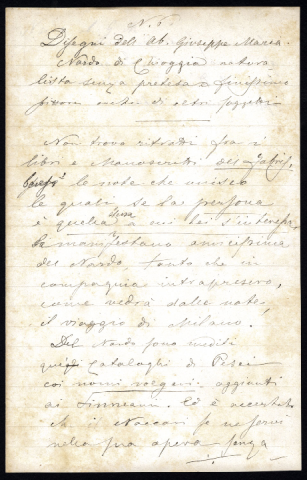 N. 6.
Disegni dell'Ab. Giuseppe Maria
Nardo di Chioggia natura
lista senza pretesa e finissimo
di altri soggetti
Non trovo ritratti fra i
libri e Manoscritti
le note che unisco
le quali se la persona
è quella stessa a cui Lei s'interessa,
la manifestano amicissima
del Nardo tanto che in
compagnia intrapresero,
come vedrà dalle note,
il viaggio di Milano.
Del Nardo sono inediti
quei Cataloghi di Pesci
coi nomi volgari aggiunti
ai Linneani. Ed è accertato
ch il Naccari se ne servì
nella sua opera senza